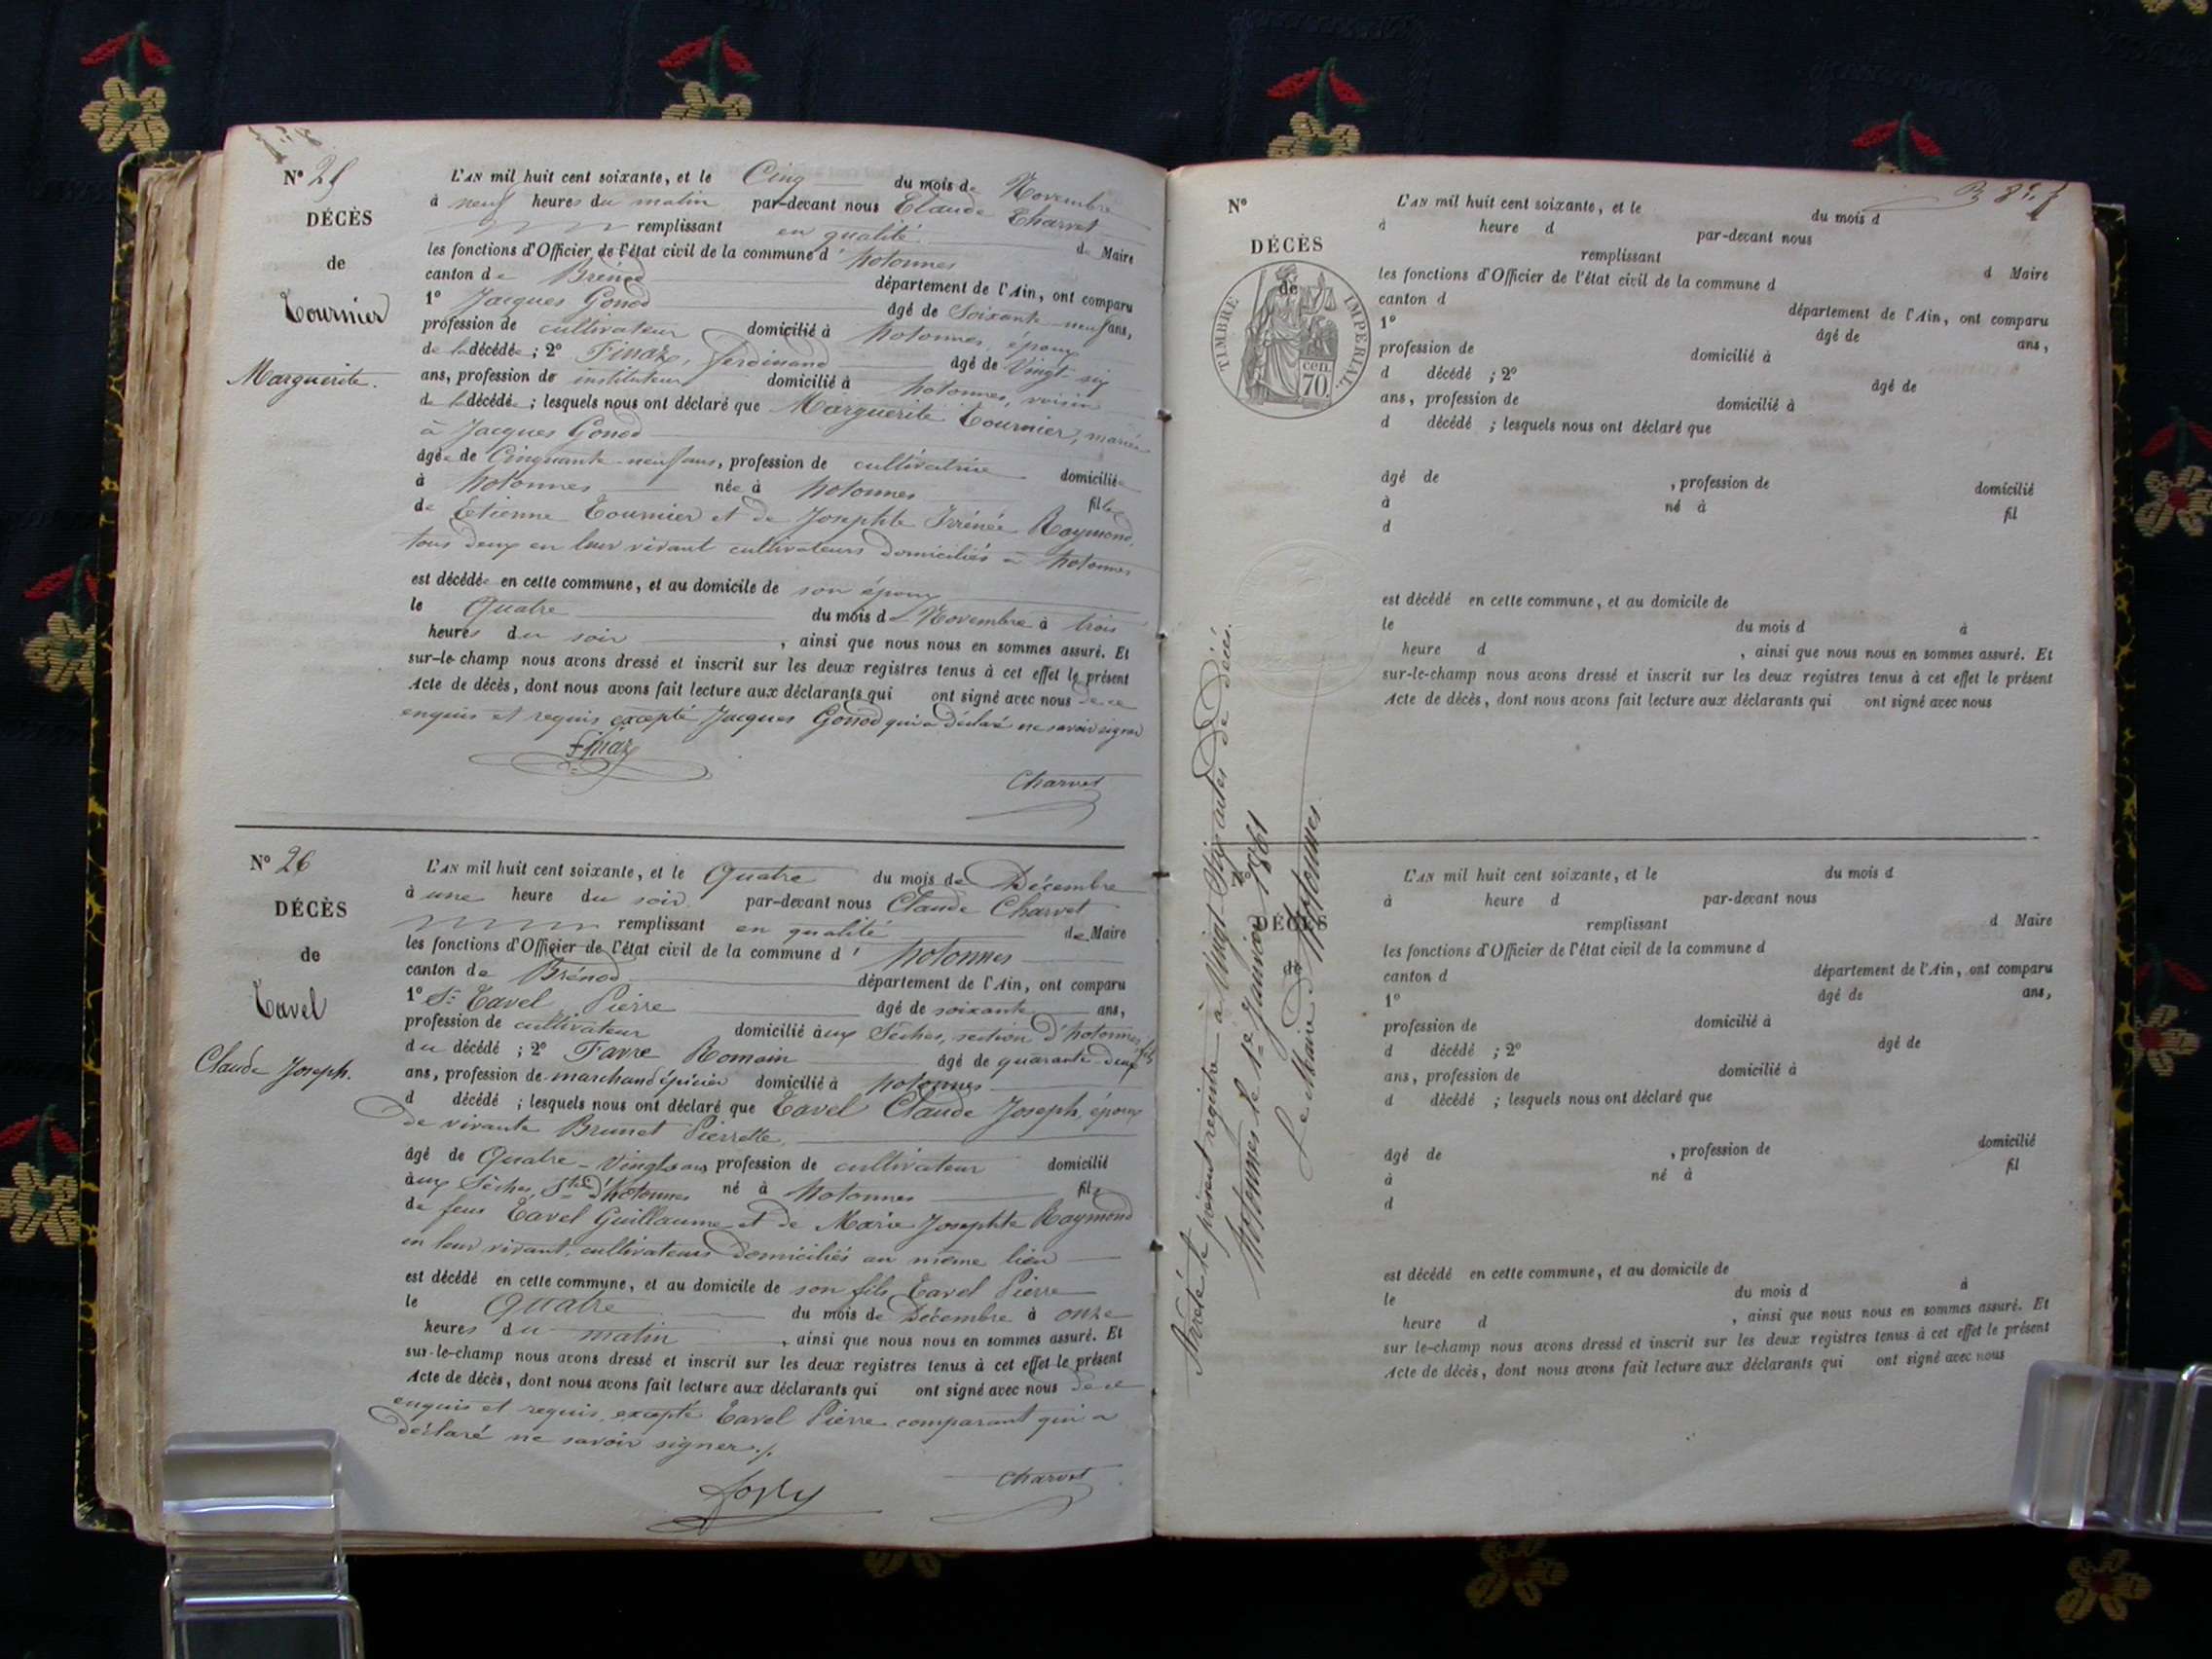 N° 25
DÉCÈS
de
Tournier
Marguerite.
L'AN mil huit cent soixante, et le Cinq du mois de Novembre
à neuf heures du matin par-devant nous Claude Charvet
remplissant en qualité de Maire
les fonctions d'Officier de l'état civil de la commune d' hotonnes
canton de Brénod département de l'Ain, ont comparu
1° Jacques Gonod âgé de Soixante-neuf ans,
profession de cultivateur domicilié à hotonnes, époux
de la décédée ; 2° Finaz, ferdinand âgé de Vingt-six
ans, profession de instituteur domicilié à hotonnes, voisin
de la décédée ; lesquels nous ont déclaré que Marguerite Tournier, mariée
à Jacques Gonod
âgée de Cinquante-neuf ans, profession de cultivatrice domiciliée
à hotonnes née à hotonnes fille
de Etienne Tournier et de Josephte Irénée Raymond,
tous deux en leur vivant cultivateurs domiciliés à hotonnes
est décédée en cette commune, et au domicile de son époux
le Quatre du mois de Novembre à trois
heures du soir , ainsi que nous nous en sommes assuré. Et
sur-le-champ nous avons dressé et inscrit sur les deux registres tenus à cet effet le présent
Acte de décès, dont nous avons fait lecture aux déclarants qui ont signé avec nous de ce
enquis et requis excepté Jacques Gonod qui a déclaré ne savoir signer
Finaz
Charvet
N° 26
DÉCÈS
de
Tavel
Claude Joseph.
L'AN mil huit cent soixante, et le Quatre du mois de Décembre
à une heure du soir par-devant nous Claude Charvet
remplissant en qualité de Maire
les fonctions d'Officier de l'état civil de la commune d' hotonnes
canton de Brénod département de l'Ain, ont comparu
1° St Tavel Pierre âgé de soixante ans,
profession de cultivateur domicilié aux Sèches, section d'hotonnes, fils
du décédé ; 2° Favre Romain âgé de quarante-deux
ans, profession de marchand épicier domicilié à hotonnes
d décédé ; lesquels nous ont déclaré que Tavel Claude Joseph, époux
de vivante Brunet Pierrette,
âgé de Quatre-Vingts ans profession de cultivateur domicilié
aux Sèches, Son d'hotonnes né à hotonnes fils
de feus Tavel Guillaume et de Marie Josephte Raymond
en leur vivant, cultivateurs domiciliés au même lieu
est décédé en cette commune, et au domicile de son fils Tavel Pierre
le Quatre du mois de Décembre à onze
heures du matin , ainsi que nous nous en sommes assuré. Et
sur-le-champ nous avons dressé et inscrit sur les deux registres tenus à cet effet le présent
Acte de décès, dont nous avons fait lecture aux déclarants qui ont signé avec nous de ce
enquis et requis, excepté Tavel Pierre comparant qui a
déclaré ne savoir signer./.
Charvet
N°
DÉCÈS
de
TIMBRE IMPÉRIAL.
cen.
70.
L'AN mil huit cent soixante, et le du mois d
à heure d par-devant nous
remplissant d Maire
les fonctions d'Officier de l'état civil de la commune d
canton d département de l'Ain, ont comparu
1° âgé de ans,
profession de domicilié à
d décédé ; 2° âgé de
ans, profession de domicilié à
d décédé ; lesquels nous ont déclaré que
âgé de , profession de domicilié
à né à fil
d
est décédé en cette commune, et au domicile de
le du mois d à
heure d , ainsi que nous nous en sommes assuré. Et
sur-le-champ nous avons dressé et inscrit sur les deux registres tenus à cet effet le présent
Acte de décès, dont nous avons fait lecture aux déclarants qui ont signé avec nous
Arrêté le présent registre à Vingt-Six actes de Décès.
Hotonnes le 1er Janvier 1861
Le Maire d'Hotonnes.
N°
DÉCÈS
de
L'AN mil huit cent soixante, et le du mois d
à heure d par-devant nous
remplissant d Maire
les fonctions d'Officier de l'état civil de la commune d
canton d département de l'Ain, ont comparu
1° âgé de ans,
profession de domicilié à
d décédé ; 2° âgé de
ans, profession de domicilié à
d décédé ; lesquels nous ont déclaré que
âgé de , profession de domicilié
à né à fil
d
est décédé en cette commune, et au domicile de
le du mois d à
heure d , ainsi que nous nous en sommes assuré. Et
sur le-champ nous avons dressé et inscrit sur les deux registres tenus à cet effet le présent
Acte de décès, dont nous avons fait lecture aux déclarants qui ont signé avec nous